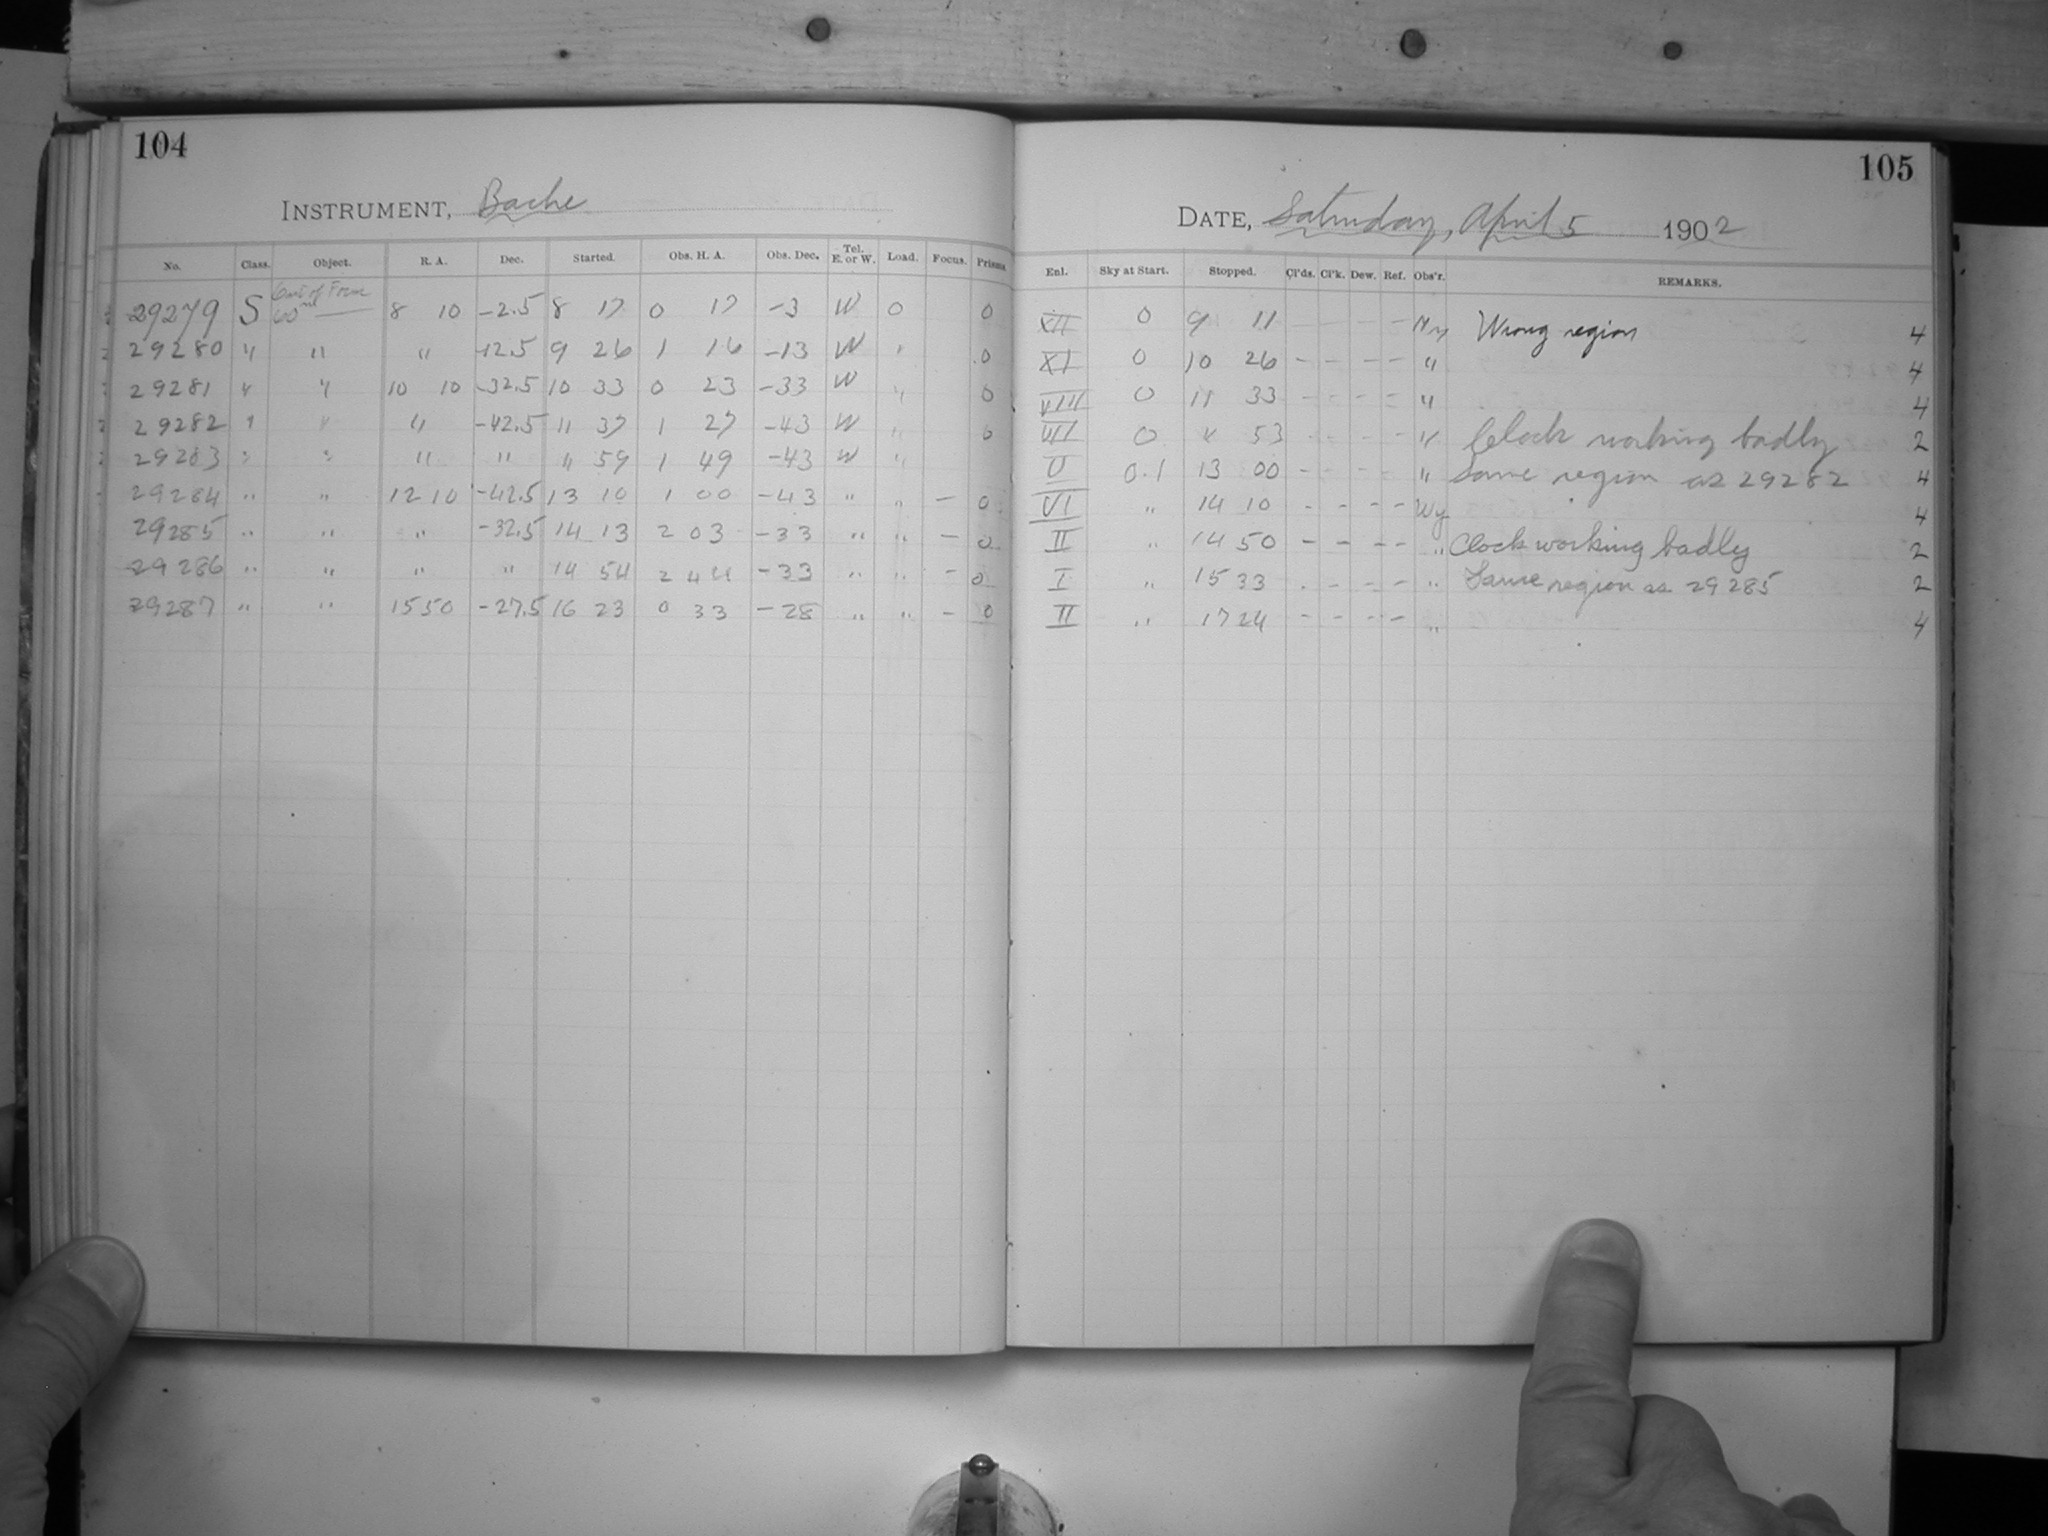 104
INSTRUMENT, Bache
No. Class. Object. R. A. Dec. Started. Obs. H. A. Obs. Dec. Tel. E. or W. Load. Focus. Prisms.
29279 S Cont of Form 60m 8 10 -2.5 8 17 0 17 -3 W 0 0
29280 " " " -12.5 9 26 1 16 -13 W " 0
29281 " " 10 10 -32.5 10 33 0 23 -33 W " 0
29282 " " " -42.5 11 37 1 27 -43 W " 0
29283 " " " " " 59 1 49 -43 W "
29284 " " 12 10 -42.5 13 10 1 00 -43 " " - 0
29285 " " " -32.5 14 13 2 03 -33 " " - 0
29286 " " " " 14 54 2 44 -33 " " - 0
29287 " " 15 50 -27.5 16 23 0 33 -28 " " - 0
105
DATE, Saturday, April 5 1902
Enl. Sky at Start. Stopped. Cl'ds. Cl'k. Dew. Ref. Obs'r. REMARKS.
XII 0 9 11 - - - - Wrong region 4
XI 0 10 26 - - - - " 4
VIII 0 11 33 - - - - " 4
VII 0 " 53 - - - - " Clock working badly 2
V 0.1 13 00 - - - - " Same region as 29282 4
VI " 14 10 - - - - Wy 4
II " 14 50 - - - - " Clock working badly 2
I " 15 33 - - - - " Same region as 29285 2
II " 17 24 - - - - " 4